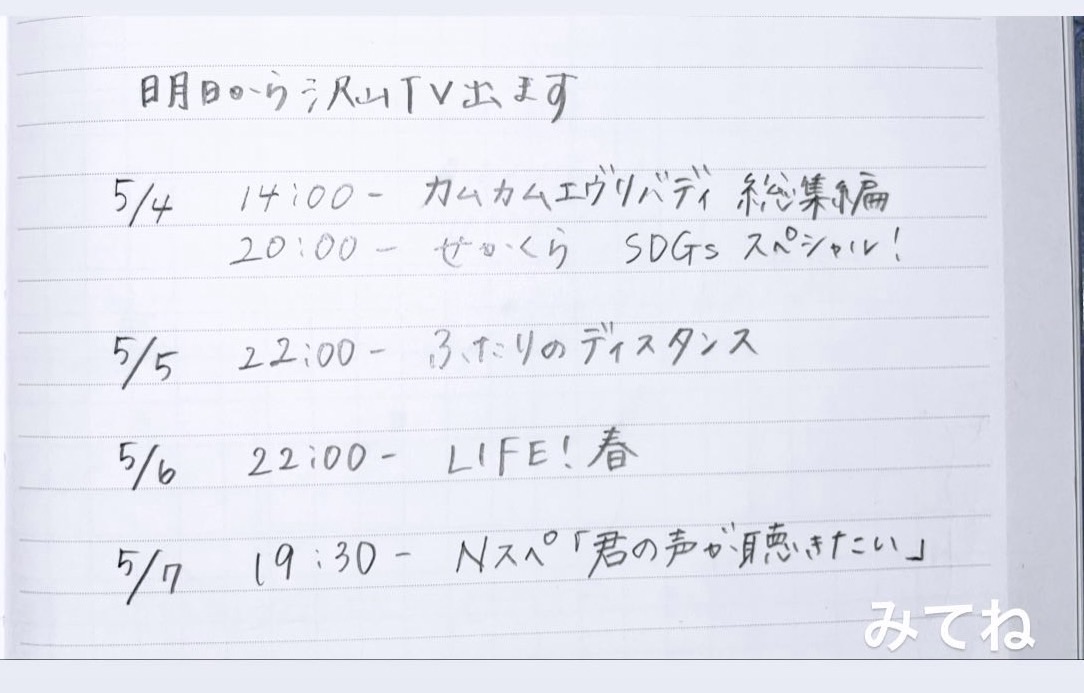 明日から沢山TV出ます
5/4 14:00- カムカムエヴリバディ 総集編
20:00- せかくら SDGs スペシャル!
5/5 22:00- ふたりのディスタンス
5/6 22:00- LIFE!春
5/7 19:30- Nスペ「君の声が聴きたい」
みてね